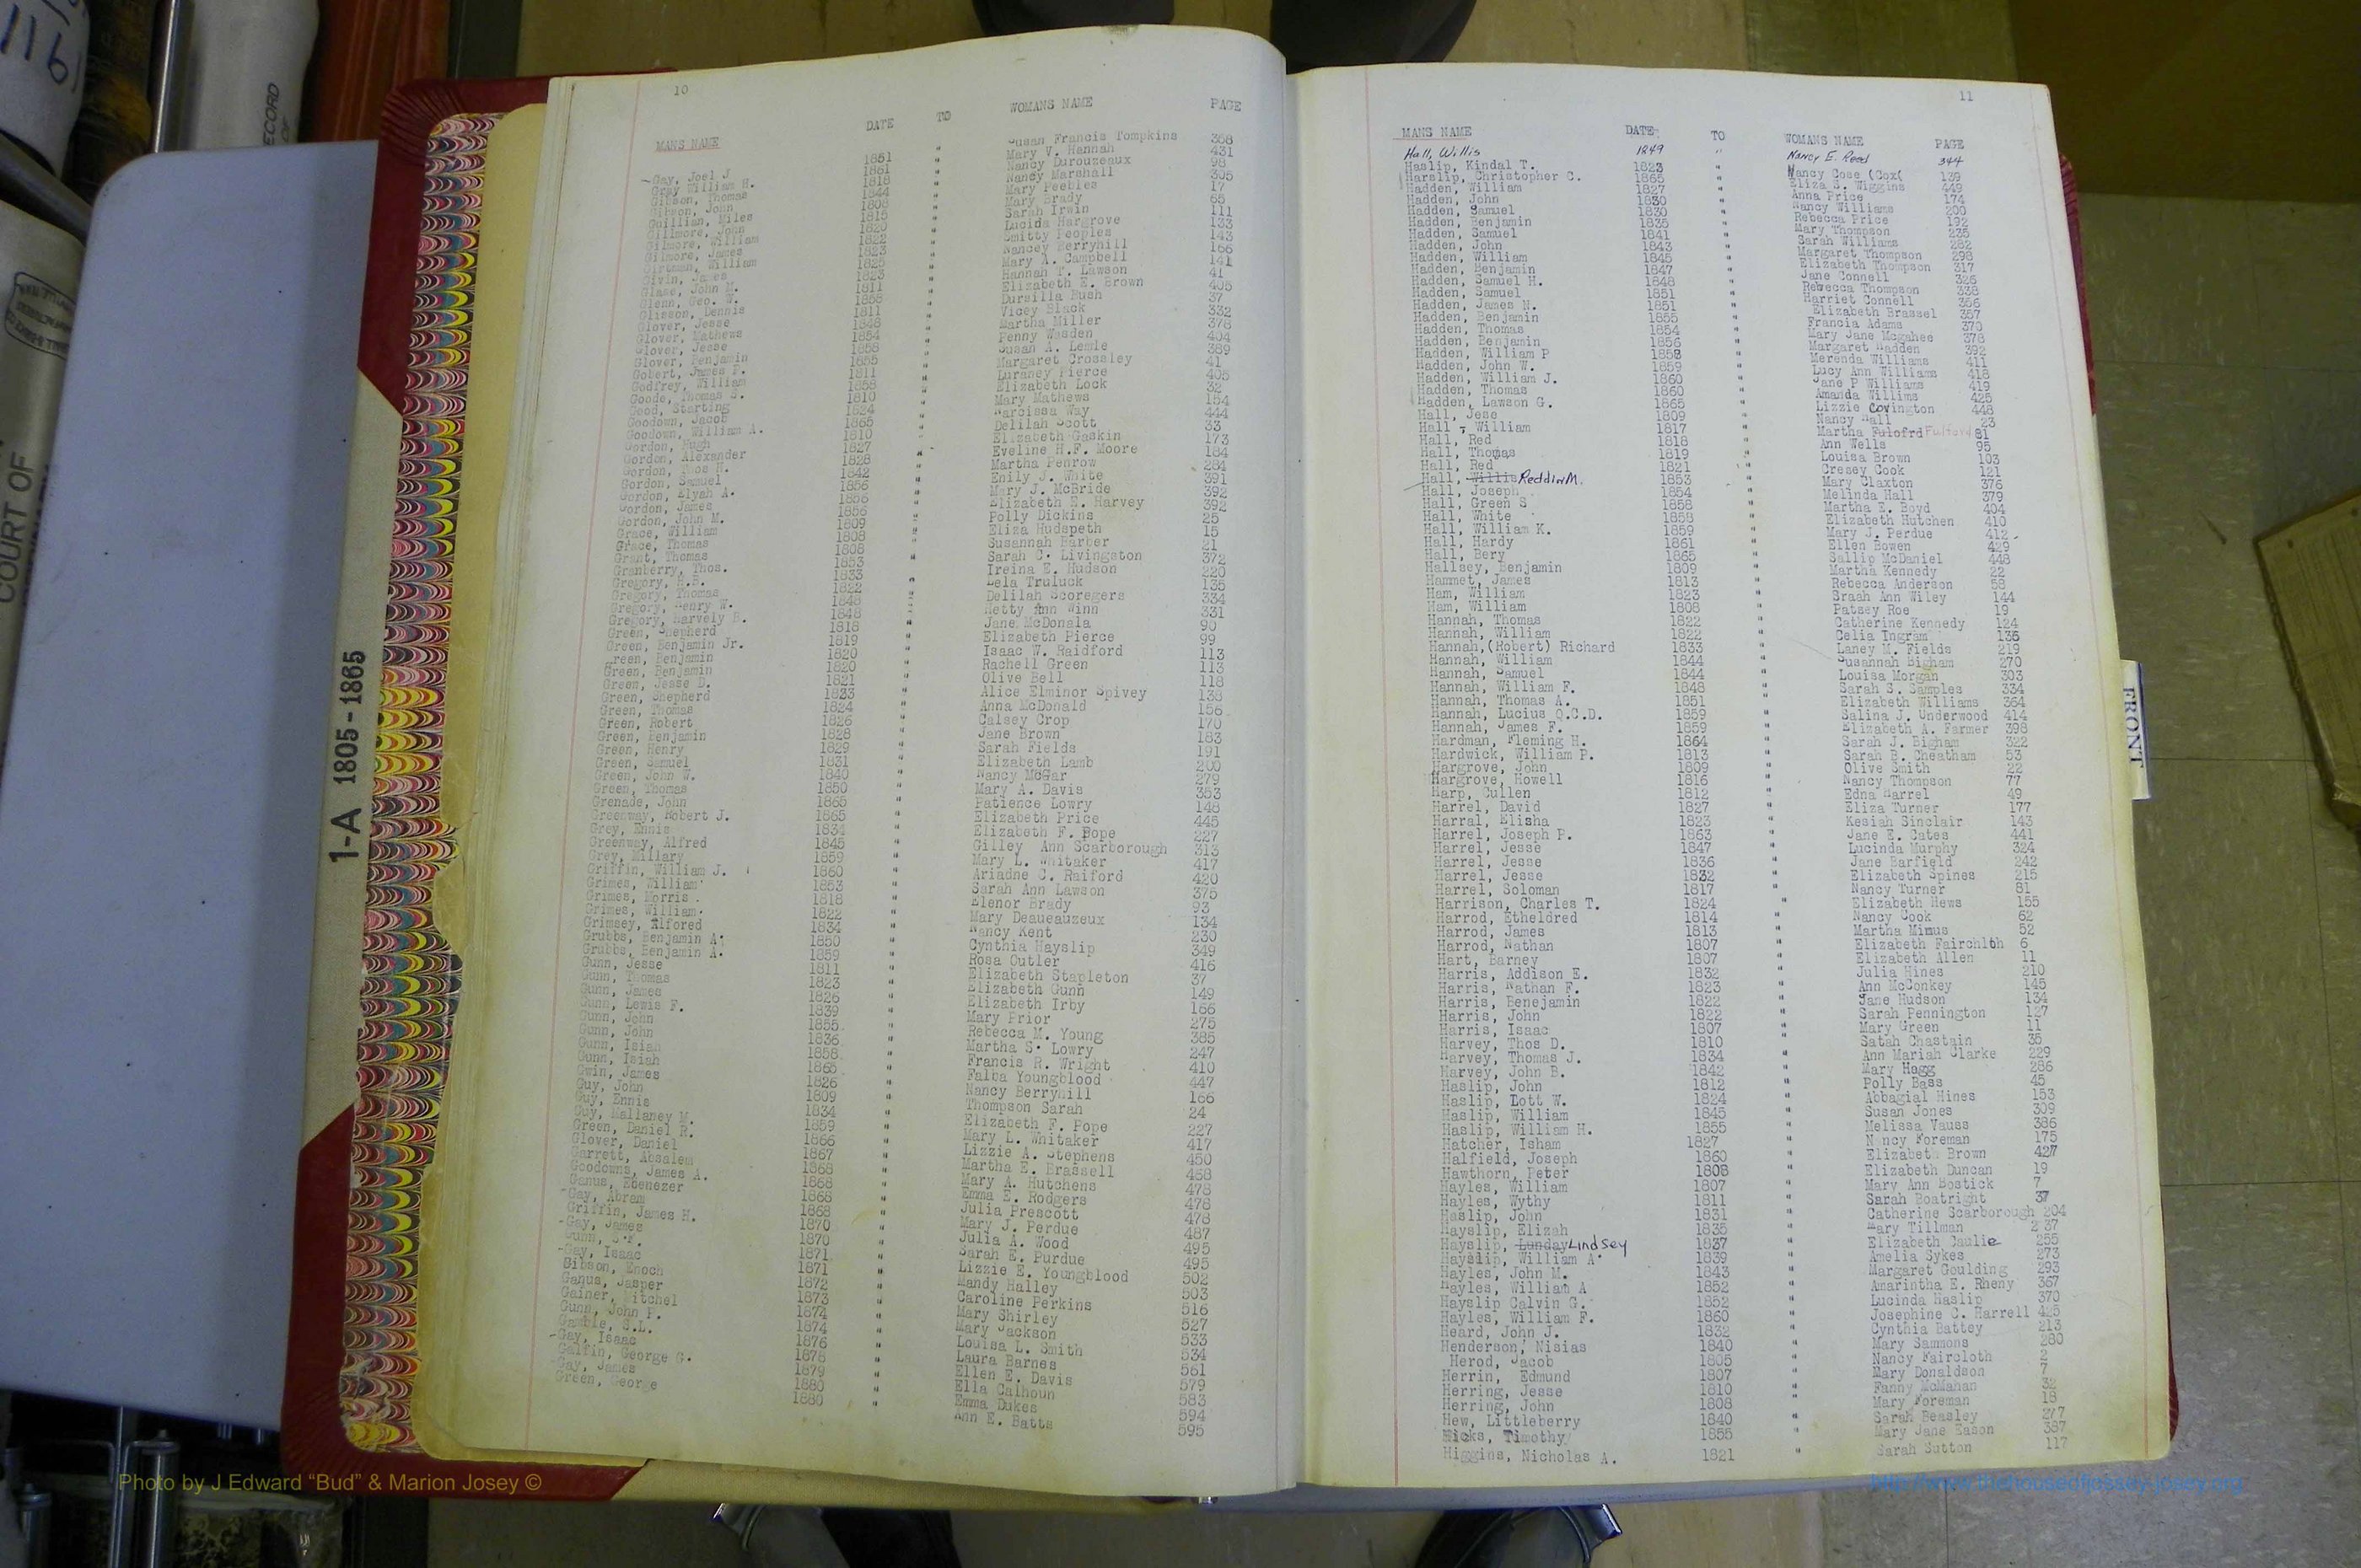 1161
RECORD
COURT OF
1-A 1805-1865
FRONT
10
MANS NAME DATE TO WOMANS NAME PAGE
Gay, Joel J 1851 " Susan Francis Tompkins 358
Gray William H. 1861 " Mary V. Hannah 431
Gibson, Thomas 1818 " Nancy Durouzeaux 98
Gibson, John 1844 " Nancy Marshall 305
Guillian, Miles 1808 " Mary Peebles 17
Gillmore, John 1815 " Mary Brady 65
Gilmore, William 1820 " Sarah Irwin 111
Gilmore, James 1822 " Lucida Hargrove 133
Girtman, William 1823 " Smitty Peoples 143
Givin, James 1825 " Nancey Berryhill 166
Glass, John M. 1823 " Mary A. Campbell 141
Glenn, Geo. W. 1811 " Hannah T. Lawson 41
Glisson, Dennis 1858 " Elizabeth E. Brown 405
Glover, Jesse 1811 " Dursilla Rush 37
Glover, Mathews 1848 " Vicey Slack 332
Glover, Jesse 1854 " Martha Miller 378
Glover, Benjamin 1858 " Penny Wasden 404
Gobert, James P. 1855 " Susan A. Lemle 389
Godfrey, William 1811 " Margaret Crossley 41
Goode, Thomas S. 1858 " Luraney Pierce 405
Good, Starting 1810 " Elizabeth Lock 32
Goodown, Jacob 1824 " Mary Mathews 154
Goodown, William A. 1865 " Narcissa Way 444
Gordon, Hugh 1810 " Delilah Scott 33
Gordon, Alexander 1827 " Elizabeth Gaskin 173
Gordon, Thos H. 1828 " Eveline H.F. Moore 184
Gordon, Samuel 1842 " Martha Penrow 284
Gordon, Elyah A. 1856 " Enily J. White 391
Gordon, James 1856 " Mary J. McBride 392
Gordon, John M. 1856 " Elizabeth E. Harvey 392
Grace, William 1809 " Polly Dickins 25
Grace, Thomas 1808 " Eliza Hudspeth 15
Grant, Thomas 1808 " Susannah Barber 21
Granberry, Thos. 1853 " Sarah C. Livingston 372
Gregory, H.B. 1833 " Ireina E. Hudson 220
Gregory, Thomas 1822 " Lela Truluck 135
Gregory, Henry W. 1848 " Delilah Scoregers 334
Gregory, Harvely B. 1848 " Hetty Ann Winn 331
Green, Shepherd 1818 " Jane McDonala 90
Green, Benjamin Jr. 1819 " Elizabeth Pierce 99
Green, Benjamin 1820 " Isaac W. Raidford 113
Green, Benjamin 1820 " Rachell Green 113
Green, Jesse D. 1821 " Olive Bell 118
Green, Shepherd 1823 " Alice Elminor Spivey 138
Green, Thomas 1824 " Anna McDonald 156
Green, Robert 1826 " Calsey Crop 170
Green, Benjamin 1828 " Jane Brown 183
Green, Henry 1829 " Sarah Fields 191
Green, Samuel 1831 " Elizabeth Lamb 200
Green, John W. 1840 " Nancy McGar 279
Green, Thomas 1850 " Mary A. Davis 353
Grenade, John 1865 " Patience Lowry 148
Greenway, Robert J. 1865 " Elizabeth Price 445
Grey, Ennis 1834 " Elizabeth F. Pope 227
Greenway, Alfred 1845 " Gilley Ann Scarborough 313
Grey, Millary 1859 " Mary L. Whitaker 417
Griffin, William J. 1860 " Ariadne C. Raiford 420
Grimes, William 1853 " Sarah Ann Lawson 375
Grimes, Morris. 1818 " Elenor Brady 93
Grimes, William. 1822 " Mary Deaueauzeux 134
Grimsey, Alfored 1834 " Nancy Kent 230
Grubbs, Benjamin A. 1850 " Cynthia Hayslip 349
Grubbs, Benjamin A. 1859 " Rosa Cutler 416
Gunn, Jesse 1811 " Elizabeth Stapleton 37
Gunn, Thomas 1823 " Elizabeth Gunn 149
Gunn, James 1826 " Elizabeth Irby 166
Gunn, Lewis F. 1839 " Mary Prior 275
Gunn, John 1855 " Rebecca M. Young 385
Gunn, John 1836 " Martha S. Lowry 247
Gunn, Isiah 1858 " Francis R. Wright 410
Gunn, Isiah 1865 " Falba Youngblood 447
Gwin, James 1826 " Nancy Berryhill 166
Guy, John 1809 " Thompson Sarah 24
Guy, Ennis 1834 " Elizabeth F. Pope 227
Guy, Mallaney M. 1859 " Mary L. Whitaker 417
Green, Daniel R. 1866 " Lizzie A. Stephens 450
Glover, Daniel 1867 " Martha E. Brassell 458
Garrett, Absalem 1868 " Mary A. Hutchens 478
Goodowns, James A. 1868 " Emma E. Rodgers 478
Ganus, Ebenezer 1868 " Julia Prescott 478
Gay, Abram 1868 " Mary J. Perdue 487
Griffin, James H. 1870 " Julia A. Wood 495
Gay, James 1870 " Sarah E. Purdue 495
Gunn, S.F. 1871 " Lizzie E. Youngblood 502
Gay, Isaac 1871 " Mandy Halley 503
Gibson, Enoch 1872 " Caroline Perkins 516
Ganus, Jasper 1873 " Mary Shirley 527
Gainer, Mitchel 1874 " Mary Jackson 533
Gunn, John P. 1874 " Louisa L. Smith 534
Gamble, S.L. 1876 " Laura Barnes 561
Gay, Isaac 1878 " Ellen E. Davis 579
Galfin, George G. 1879 " Ella Calhoun 583
Gay, James 1880 " Emma Dukes 594
Green, George 1880 " Ann E. Batts 595
11
MANS NAME DATE TO WOMANS NAME PAGE
Hall, Willis 1849 " Nancy E. Reed 344
Haslip, Kindal T. 1823 " Nancy Cose (Cox( 139
Harslip, Christopher C. 1865 " Eliza S. Wiggins 449
Hadden, William 1827 " Anna Price 174
Hadden, John 1830 " Nancy Williams 200
Hadden, Samuel 1830 " Rebecca Price 192
Hadden, Benjamin 1835 " Mary Thompson 235
Hadden, Samuel 1841 " Sarah Williams 282
Hadden, John 1843 " Margaret Thompson 298
Hadden, William 1845 " Elizabeth Thompson 317
Hadden, Benjamin 1847 " Jane Connell 326
Hadden, Samuel H. 1848 " Rebecca Thompson 338
Hadden, Samuel 1851 " Harriet Connell 356
Hadden, James N. 1851 " Elizabeth Brassel 357
Hadden, Benjamin 1855 " Francia Adams 370
Hadden, Thomas 1854 " Mary Jane Mcgahee 378
Hadden, Benjamin 1856 " Margaret Hadden 392
Hadden, William P 1858 " Merenda Williams 411
Hadden, John W. 1859 " Lucy Ann Williams 418
Hadden, William J. 1860 " Jane P Williams 419
Hadden, Thomas 1860 " Amanda Willims 425
Hadden, Lawson G. 1865 " Lizzie Covington 448
Hall, Jese 1809 " Nancy Hall 23
Hall, William 1817 " Martha Fulofrd Fulford 81
Hall, Red 1818 " Ann Wells 95
Hall, Thomas 1819 " Louisa Brown 103
Hall, Red 1821 " Cresey Cook 121
Hall, Willis Reddin M. 1853 " Mary Claxton 376
Hall, Joseph 1854 " Melinda Hall 379
Hall, Green S 1858 " Martha E. Boyd 404
Hall, White 1858 " Elizabeth Hutchen 410
Hall, William K. 1859 " Mary J. Perdue 412
Hall, Hardy 1861 " Ellen Bowen 429
Hall, Bery 1865 " Sallip McDaniel 448
Hallsey, Benjamin 1809 " Martha Kennedy 22
Hammet, James 1813 " Rebecca Anderson 58
Ham, William 1823 " Sraah Ann Wiley 144
Ham, William 1808 " Patsey Roe 19
Hannah, Thomas 1822 " Catherine Kennedy 124
Hannah, William 1822 " Celia Ingram 136
Hannah,(Robert) Richard 1833 " Laney M. Fields 219
Hannah, William 1844 " Susannah Bigham 270
Hannah, Samuel 1844 " Louisa Morgan 303
Hannah, William F. 1848 " Sarah S. Samples 334
Hannah, Thomas A. 1851 " Elizabeth Williams 364
Hannah, Lucius Q.C.D. 1859 " Salina J. Underwood 414
Hannah, James F. 1859 " Elizabeth A. Farmer 398
Hardman, Fleming H. 1864 " Sarah J. Bigham 322
Hardwick, William P. 1813 " Sarah B. Cheatham 53
Hargrove, John 1809 " Olive Smith 22
Hargrove, Howell 1816 " Nancy Thompson 77
Harp, Cullen 1812 " Edna Harrel 49
Harrel, David 1827 " Eliza Turner 177
Harral, Elisha 1823 " Kesiah Sinclair 143
Harrel, Joseph P. 1863 " Jane E. Cates 441
Harrel, Jesse 1847 " Lucinda Murphy 324
Harrel, Jesse 1836 " Jane Barfield 242
Harrel, Jesse 1832 " Elizabeth Spines 215
Harrel, Soloman 1817 " Nancy Turner 81
Harrison, Charles T. 1824 " Elizabeth Hews 155
Harrod, Etheldred 1814 " Nancy Cook 62
Harrod, James 1813 " Martha Mimus 52
Harrod, Nathan 1807 " Elizabeth Fairchlth 6
Hart, Barney 1807 " Elizabeth Allen 11
Harris, Addison E. 1832 " Julia Hines 210
Harris, Nathan F. 1823 " Ann McConkey 145
Harris, Benejamin 1822 " Jane Hudson 134
Harris, John 1822 " Sarah Pennington 127
Harris, Isaac 1807 " Mary Green 11
Harvey, Thos D. 1810 " Satah Chastain 35
Harvey, Thomas J. 1834 " Ann Mariah Clarke 229
Harvey, John B. 1842 " Mary Hogg 286
Haslip, John 1812 " Polly Bass 45
Haslip, Lott W. 1824 " Abbagial Hines 153
Haslip, William 1845 " Susan Jones 309
Haslip, William H. 1855 " Melissa Vauss 386
Hatcher, Isham 1827 " Nancy Foreman 175
Halfield, Joseph 1860 " Elizabeth Brown 427
Hawthorn, Peter 1808 " Elizabeth Duncan 19
Hayles, William 1807 " Mary Ann Bostick 7
Hayles, Wythy 1811 " Sarah Boatright 37
Haslip, John 1831 " Catherine Scarborough 204
Hayslip, Elizah 1835 " Mary Tillman 237
Hayslip, Lunday Lindsey 1837 " Elizabeth Caulie 255
Hayslip, William A. 1839 " Amelia Sykes 273
Hayles, John M. 1843 " Margaret Goulding 293
Hayles, William A 1852 " Amarintha E. Rheny 367
Hayslip Calvin G. 1852 " Lucinda Haslip 370
Hayles, William F. 1860 " Josephine C. Harrell 425
Heard, John J. 1832 " Cynthia Battey 213
Henderson, Nisias 1840 " Mary Sammons 280
Herod, Jacob 1805 " Nancy Faircloth 2
Herrin, Edmund 1807 " Mary Donaldson 7
Herring, Jesse 1810 " Fanny McMahan 32
Herring, John 1808 " Mary Foreman 18
Hew, Littleberry 1840 " Sarah Beasley 277
Hicks, Timothy 1855 " Mary Jane Eason 387
Higgins, Nicholas A. 1821 " Sarah Sutton 117
Photo by J Edward “Bud” & Marion Josey ©
http://www.thehouseofjossey-josey.org